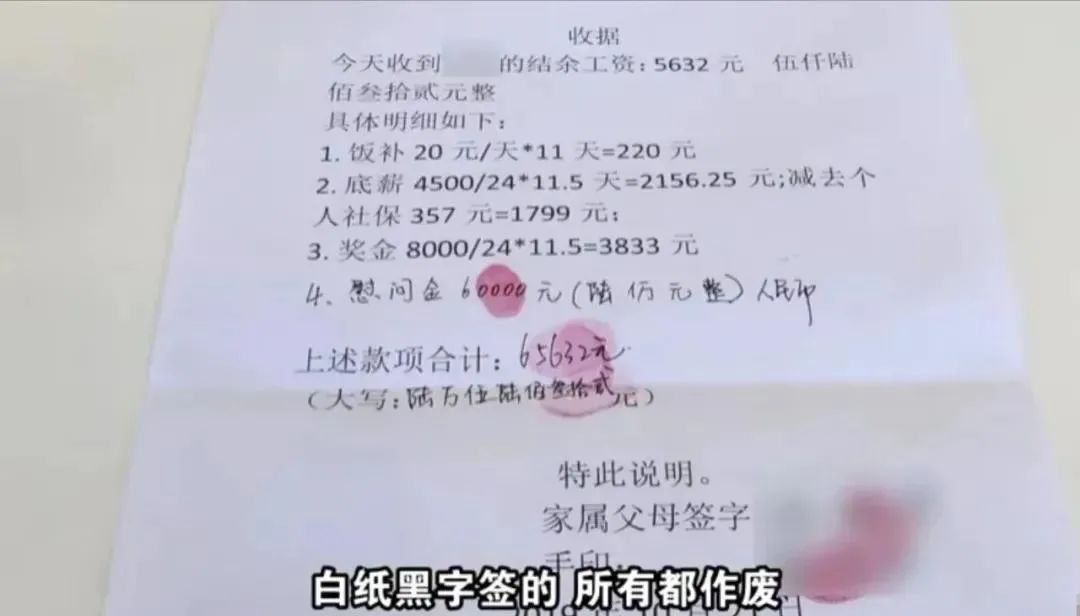 收据
今天收到 的结余工资:5632 元 伍仟陆
佰叁拾贰元整
具体明细如下:
1. 饭补 20 元/天*11 天=220 元
2. 底薪 4500/24*11.5 天=2156.25 元;减去个
人社保 357 元=1799 元;
3. 奖金 8000/24*11.5=3833 元
4. 慰问金 60000元(陆仿元整)人民币
上述款项合计:65632元
(大写:陆万伍陆佰叁拾贰元)
特此说明。
家属父母签字
手印:
白纸黑字签的 所有都作废